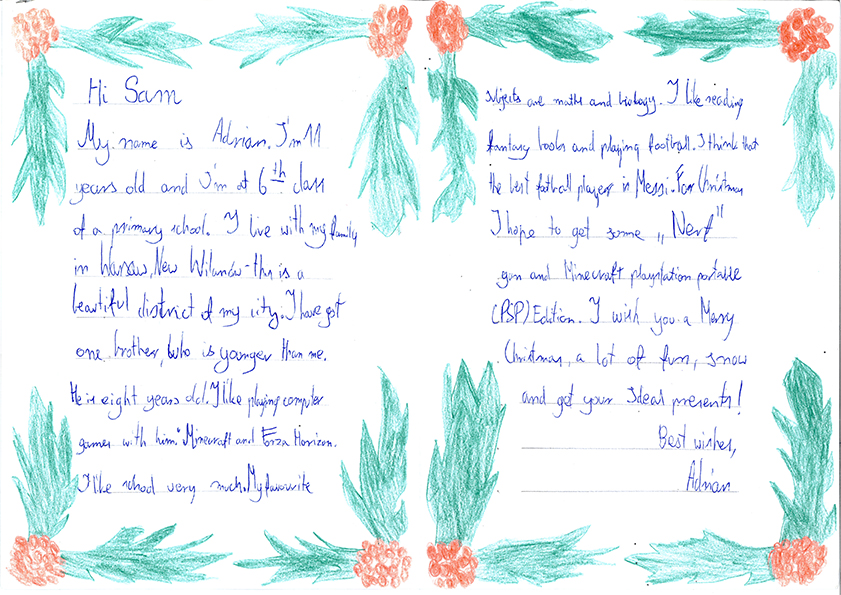 Hi Sam
My name is Adrian. I'm 11
years old and I'm at 6th class
of a primary school. I live with my family
in Warsaw, New Wilanów - this is a
beautiful district of my city. I have got
one brother, who is younger than me.
He is eight years old. I like playing computer
games with him: Minecraft and Forza Horizon.
I like school very much. My favourite
subjects are maths and biology. I like reading
fantasy books and playing football. I think that
the best football player is Messi. For Christmas
I hope to get some „Nerf”
gun and Minecraft playstation portable
(PSP) Edition. I wish you a Merry
Christmas, a lot of fun, snow
and get your ideal presents!
Best wishes,
Adrian